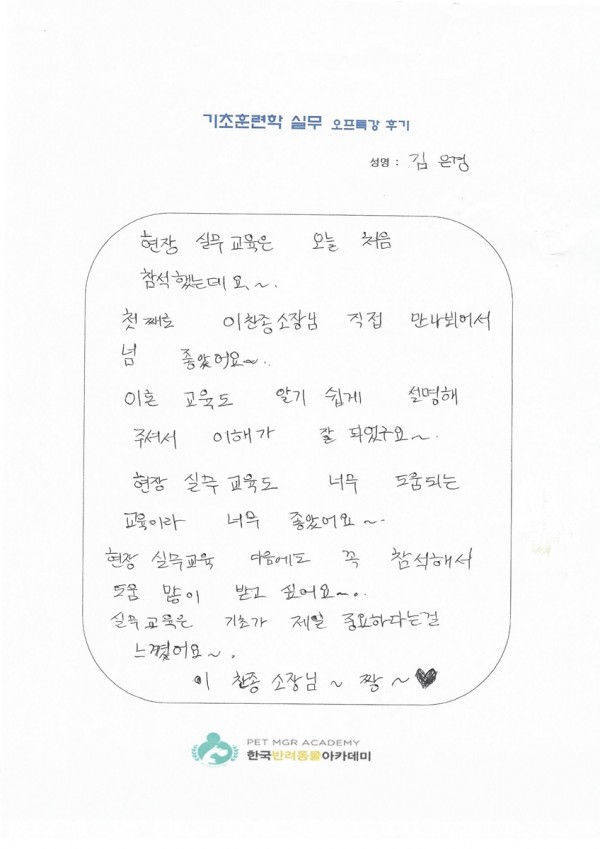 기초훈련학 실무 오프특강 후기
성명 : 김은경
현장 실무교육은 오늘 처음
참석했는데요~.
첫째로 이찬종소장님 직접 만나뵈어서
넘 좋았어요~..
이론 교육도 알기 쉽게 설명해
주셔서 이해가 잘 되었구요~.
현장 실무교육도 너무 도움되는
교육이라 너무 좋았어요~.
현장 실무교육 다음에도 꼭 참석해서
도움 많이 받고 싶어요~..
실무교육은 기초가 제일 중요하다는걸
느꼈어요~.
이찬종 소장님~ 짱~♥
PET MGR ACADEMY
한국반려동물아카데미